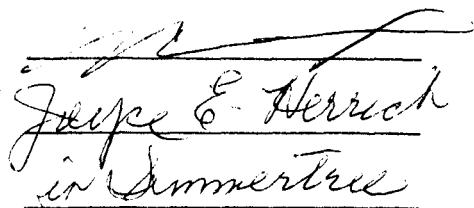 Joyce E. Herrich
in Summertree